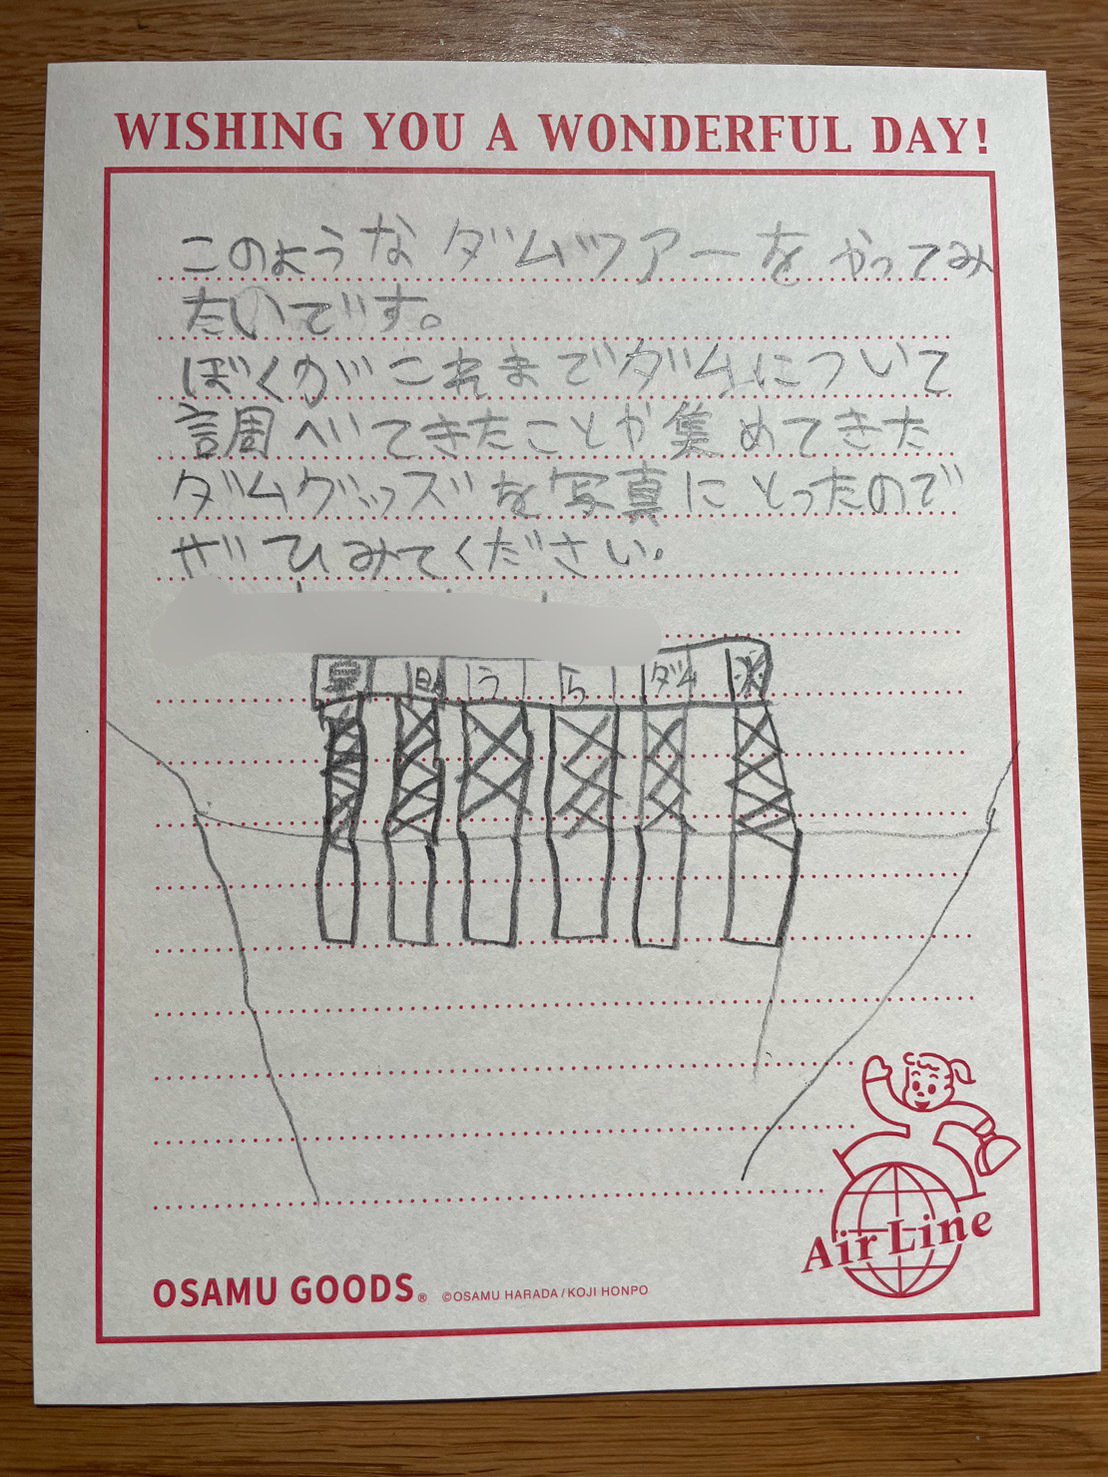 WISHING YOU A WONDERFUL DAY!
このようなダムツアーをやってみ
たいです。
ぼくがこれまでダムについて
調べてきたことや集めてきた
ダムグッズを写真にとったので
ぜひみてください。
うらダム
OSAMU GOODS® ©OSAMU HARADA / KOJI HONPO
Air Line